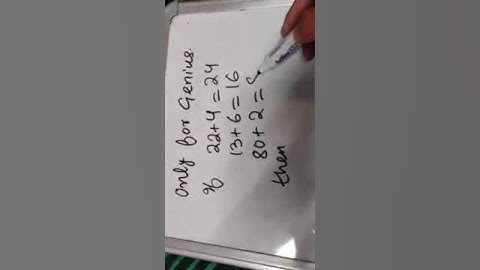 Only for Genius.
If 22+4=24
13+6=16
80+2=
then